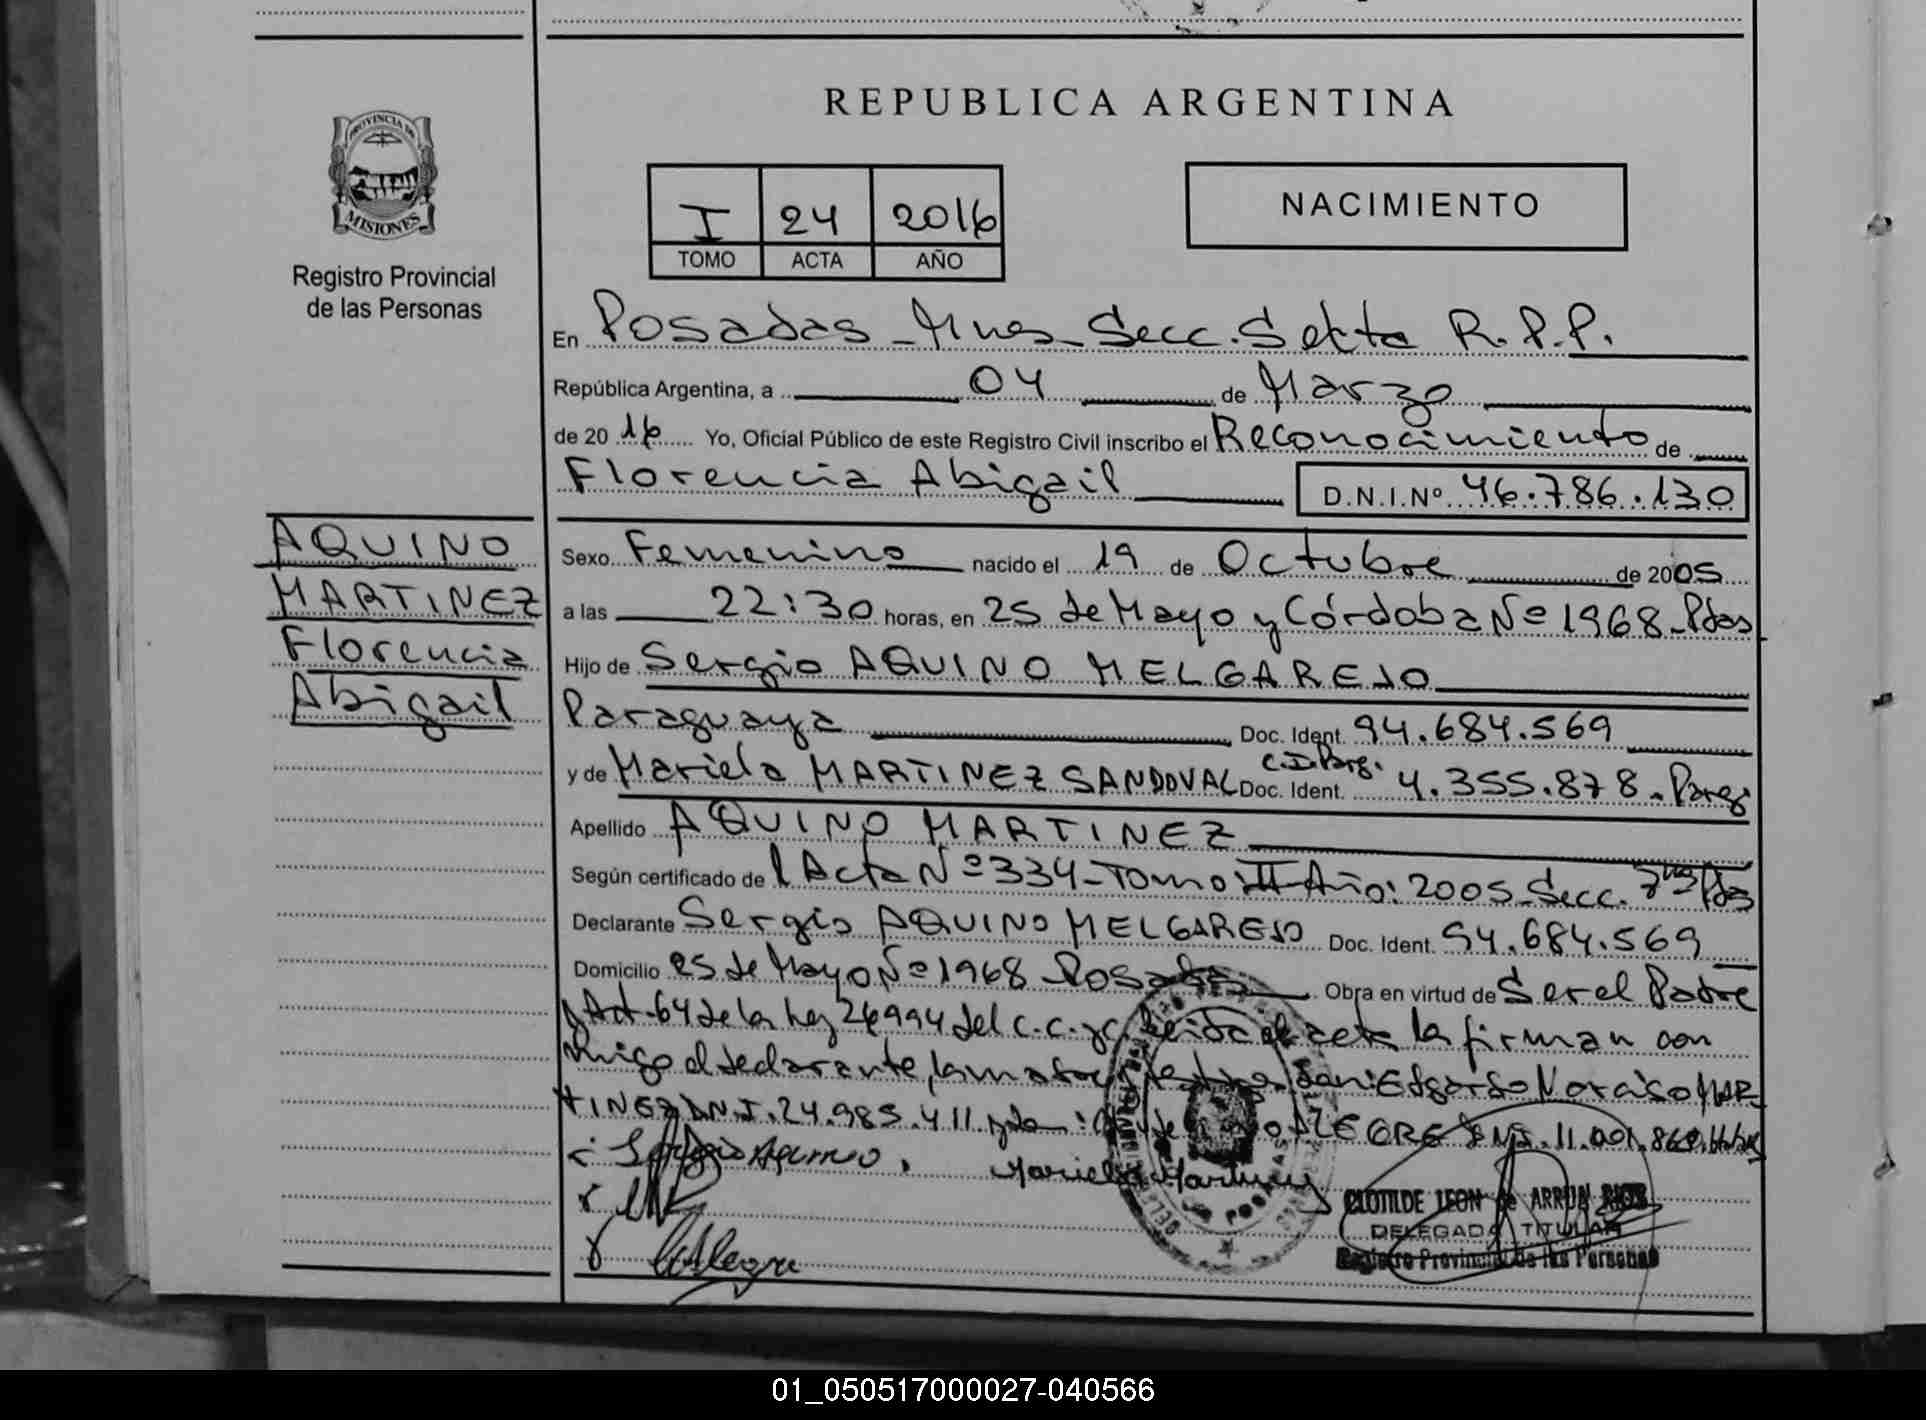 REPUBLICA ARGENTINA
PROVINCIA DE
MISIONES
Registro Provincial
de las Personas
I 24 2016
TOMO ACTA AÑO
NACIMIENTO
En Posadas - Mnes - Secc. Setta R.P.P.
República Argentina, a 04 de Marzo
de 20 16 Yo, Oficial Público de este Registro Civil inscribo el Reconocimiento de
Florencia Abigail D.N.I.Nº 46.786.130
AQUINO
MARTINEZ
Florencia
Abigail
Sexo Femenino nacido el 19 de Octubre de 2005
a las 22:30 horas, en 25 de Mayo y Córdoba Nº 1968 - Pdas
Hijo de Sergio AQUINO MELGAREJO
Paraguaya Doc. Ident. 94.684.569
y de Mariela MARTINEZ SANDOVAL Doc. Ident. C.I. Parg. 4.355.878 - Parag
Apellido AQUINO MARTINEZ
Según certificado de l Acta Nº 334 - Tomo: II - Año: 2005 - Secc. 7ma Pdas
Declarante Sergio AQUINO MELGAREJO Doc. Ident. 94.684.569
Domicilio 25 de Mayo Nº 1968 Posadas Obra en virtud de Ser el Padre
Art. 64 de la Ley 26994 del C.C. y C. Leida el acta la firman con
migo el declarante, la madre y testigos Edgardo Narciso MAR-
TINEZ D.N.I. 24.985.411 ALEGRE
Sergio Aquino Mariela Martinez
CLOTILDE LEON de ARRUA
DELEGADA TITULAR
Registro Provincial de las Personas
CAlegre
01_050517000027-040566